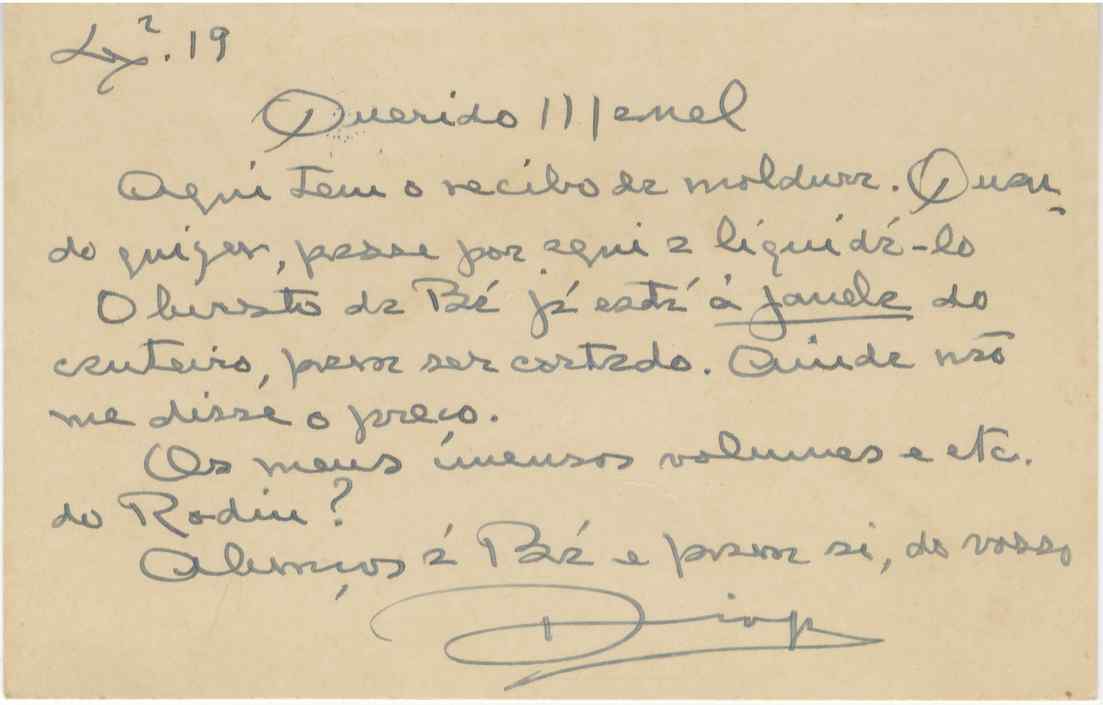 Lxª. 19
Querido Manel
Aqui tem o recibo da moldura. Quan
do quizer, passe por aqui a liquidá-lo
O busto da Bé já está à janela do
canteiro, para ser cortado. Ainda não
me disse o preço.
Os meus imensos volumes e etc.
do Rodin?
Abraços à Bé e para si, do vosso
Diogo